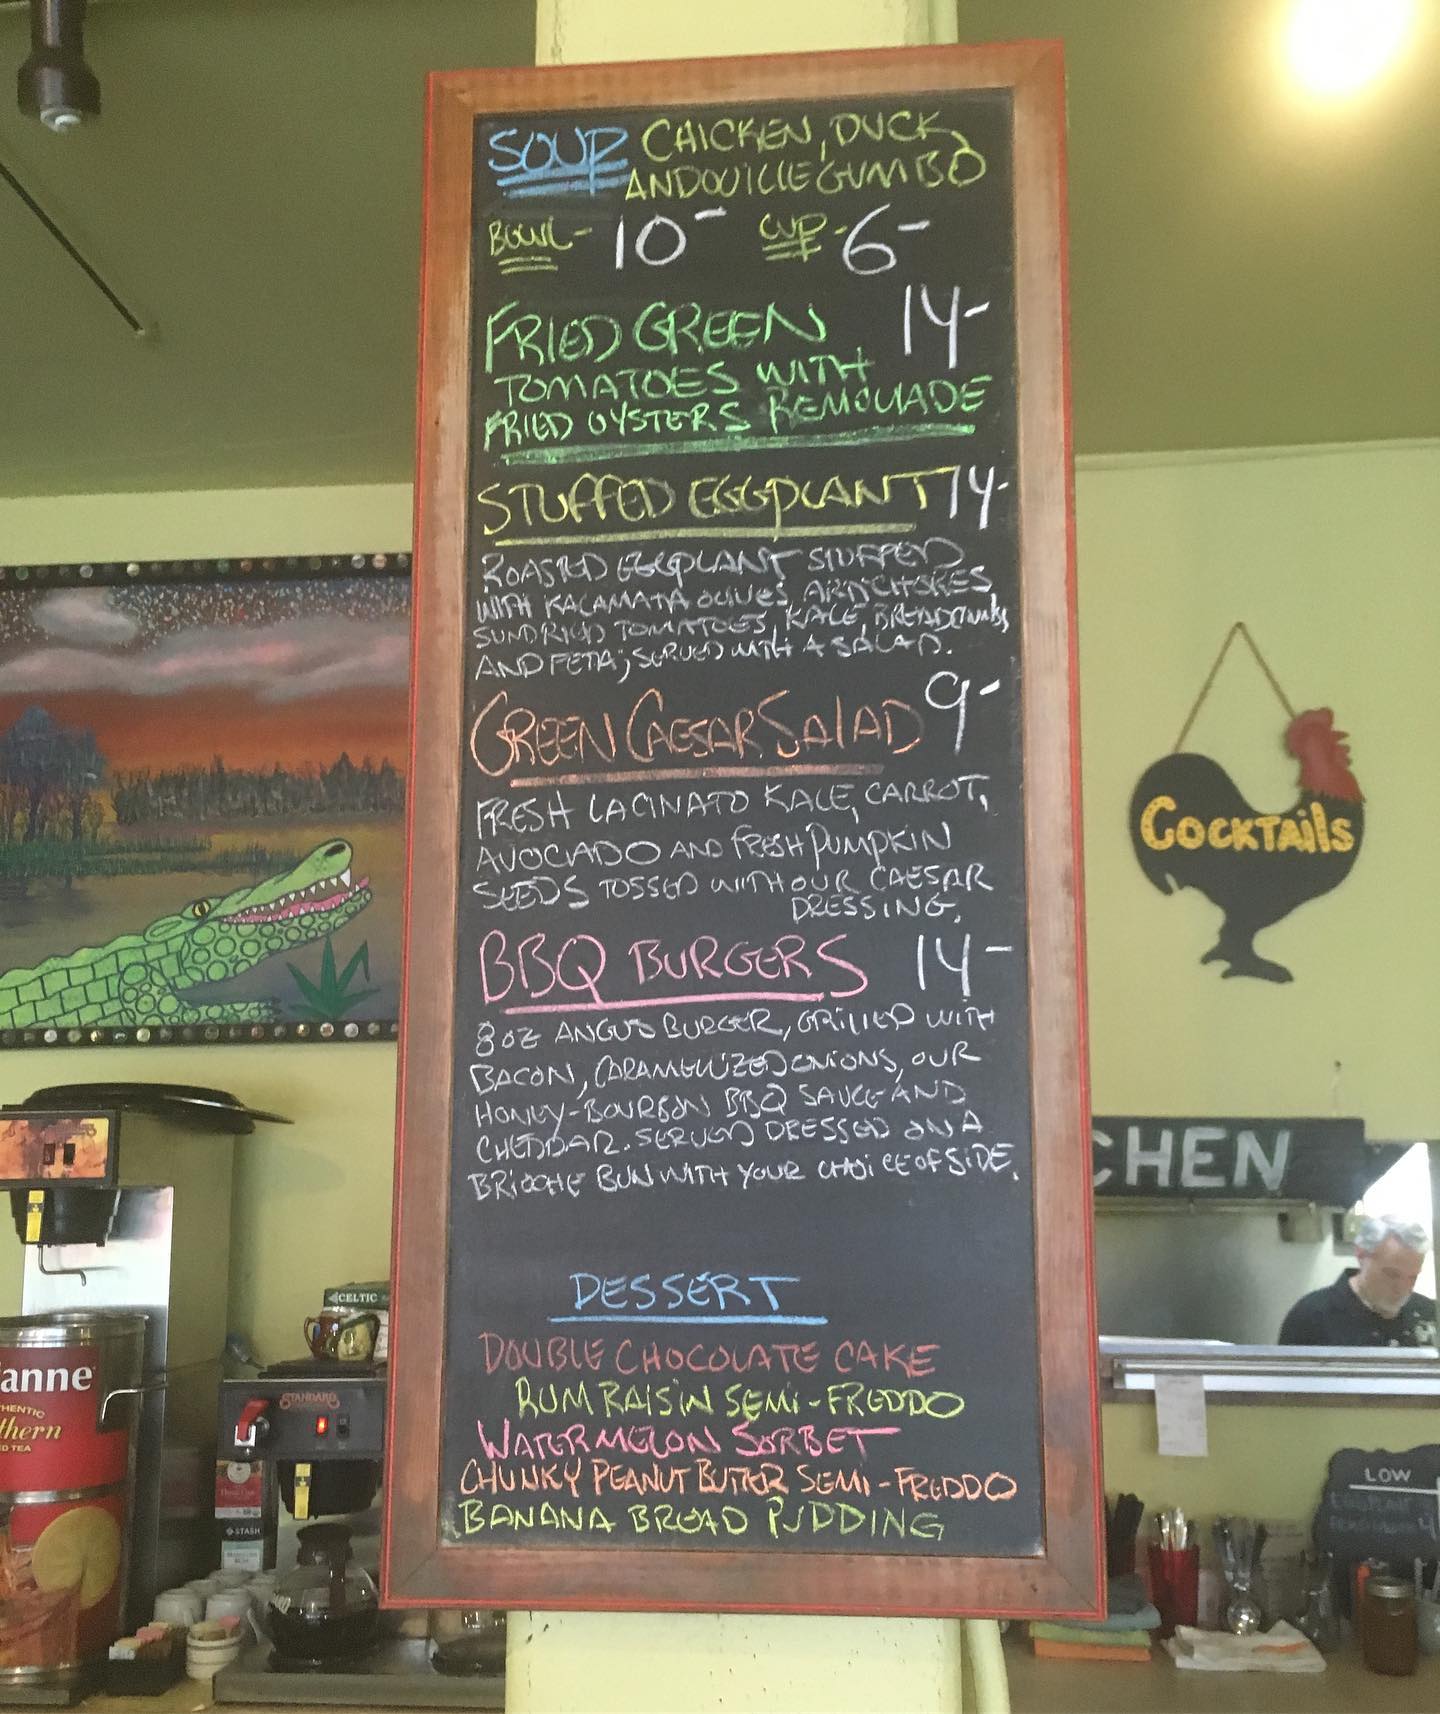 SOUP CHICKEN, DUCK,
ANDOUILLE GUMBO
BOWL- 10- CUP- 6-
FRIED GREEN 14-
TOMATOES WITH
FRIED OYSTERS REMOULADE
STUFFED EGGPLANT 14-
ROASTED EGGPLANT STUFFED
WITH KALAMATA OLIVES, ARTICHOKES
SUNDRIED TOMATOES, KALE, BREADCRUMBS,
AND FETA; SERVED WITH A SALAD.
GREEN CAESAR SALAD 9-
FRESH LACINATO KALE, CARROT,
AVOCADO AND FRESH PUMPKIN
SEEDS TOSSED WITH OUR CAESAR
DRESSING.
BBQ BURGERS 14-
8 OZ ANGUS BURGER, GRILLED WITH
BACON, CARAMELIZED ONIONS, OUR
HONEY-BOURBON BBQ SAUCE AND
CHEDDAR. SERVED DRESSED ON A
BRIOCHE BUN WITH YOUR CHOICE OF SIDE.
DESSERT
DOUBLE CHOCOLATE CAKE
RUM RAISIN SEMI-FREDDO
WATERMELON SORBET
CHUNKY PEANUT BUTTER SEMI-FREDDO
BANANA BREAD PUDDING
COCKTAilS
CHEN
CELTIC
STANDARD
STASH
anne
HENTIC
thern
ED TEA
LOW